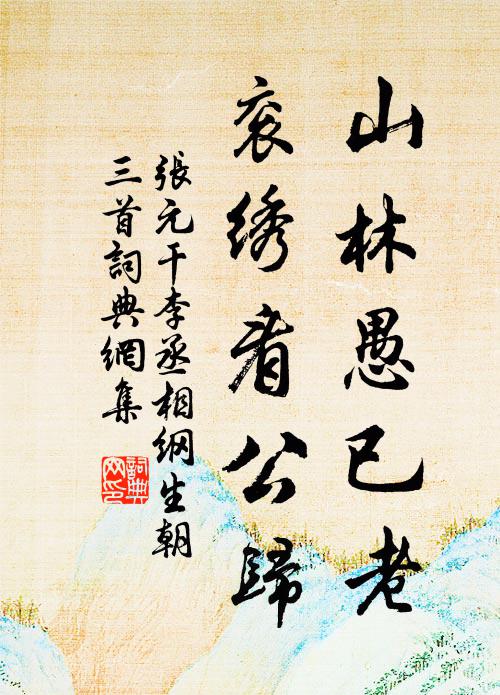 山林愚已老
衮绣看公歸
張元干李丞相纲生朝
三首詞典網集
詞典
网印